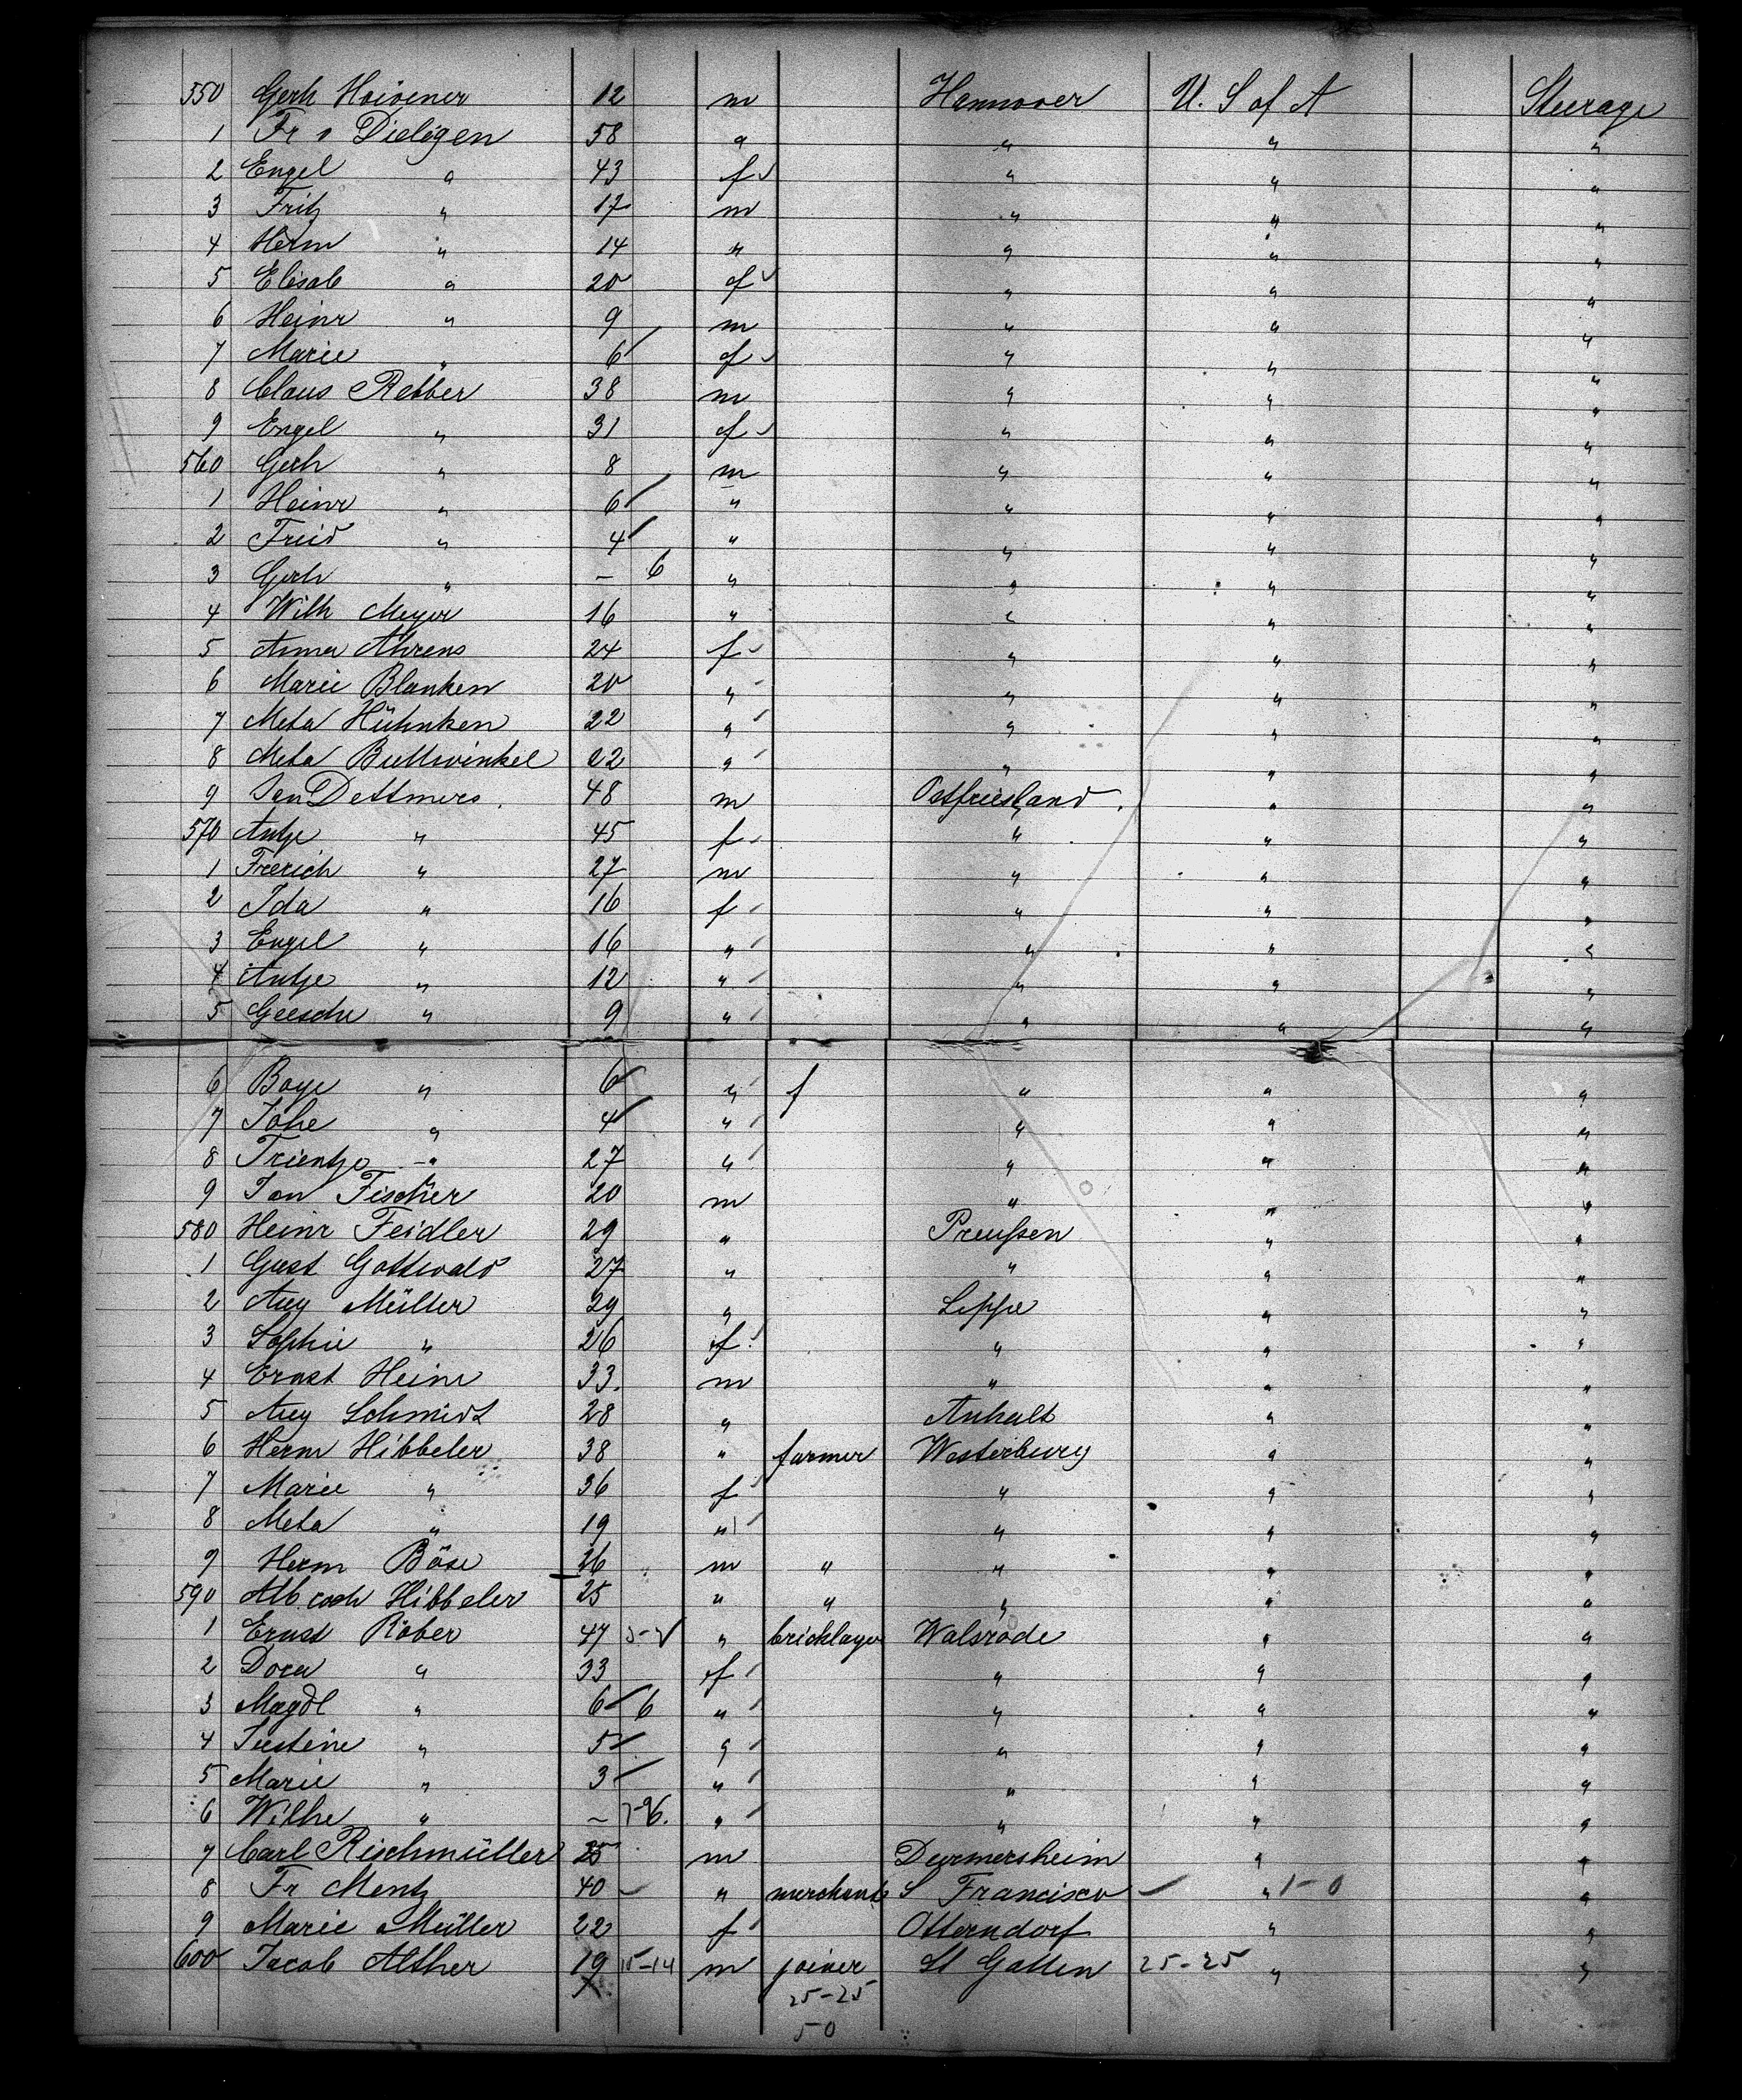 550 Gerh Hoivener 12 m Hannover U. S of A Steerage
1 Fr v Dieligen 58 " " " "
2 Engel " 43 f " " "
3 Fritz " 17 m " " "
4 Herm " 14 " " " "
5 Elisab " 20 f " " "
6 Heinr " 9 m " " "
7 Marie " 6 f " " "
8 Claus Rebber 38 m " " "
9 Engel " 31 f " " "
560 Gerh " 8 m " " "
1 Heinr " 6 " " " "
2 Freid " 4 " " " "
3 Gerh " – 6 " " " "
4 Wilh Meyer 16 " " " "
5 Anna Ahrens 24 f " " "
6 Marie Blanken 20 " " " "
7 Meta Hühnken 22 " " " "
8 Meta Buttwinkel 22 " " " "
9 Jan Dettmers. 48 m Ostfriesland. " "
570 Antje " 45 f " " "
1 Frerich " 27 m " " "
2 Ida " 16 f " " "
3 Engel " 16 " " " "
4 Antje " 12 " " " "
5 Geesche " 9 " " " "
6 Boye " 6 " f " " "
7 " 4 " " " "
8 Trientje " 27 " " " "
9 Jan Fischer 20 m " " "
580 Heinr Feidler 29 " Preußen " "
1 Gust Gottwald 27 " " " "
2 Aug Müller 29 " Lippe " "
3 Sophie " 26 f " " "
4 Ernst Heine 33. m " " "
5 Aug Schmidt 28 " Anhalt " "
6 Herm Hibbeler 38 " farmer Westerburg " "
7 Marie " 36 f " " "
8 Meta " 19 " " " "
9 Herm Böse 26 m " " " "
590 Alb Hibbeler 25 " " " " "
1 Ernst Röber 47 " bricklayer Walsrode " "
2 Dora " 33 f " " "
3 Magdl " 6 6 " " " "
4 Justine " 5 " " " "
5 Marie " 3 " " " "
6 Wilhe " – " " " "
7 Carl Rischmüller 25 m Durmersheim " "
8 Fr Mentz 40 " merchant S Francisco " 1-0 "
9 Marie Müller 22 f Otterndorf " "
600 Jacob Alther 19 15-14 m joiner St Gallen 25-25 " "
25-25
50